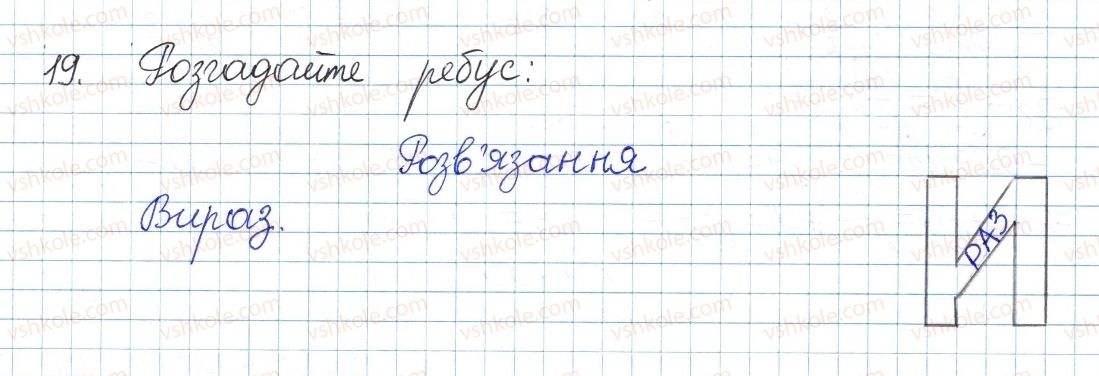 19. Розгадайте ребус:
Розв'язання
Вираз.
И
РАЗ
vshkole.com